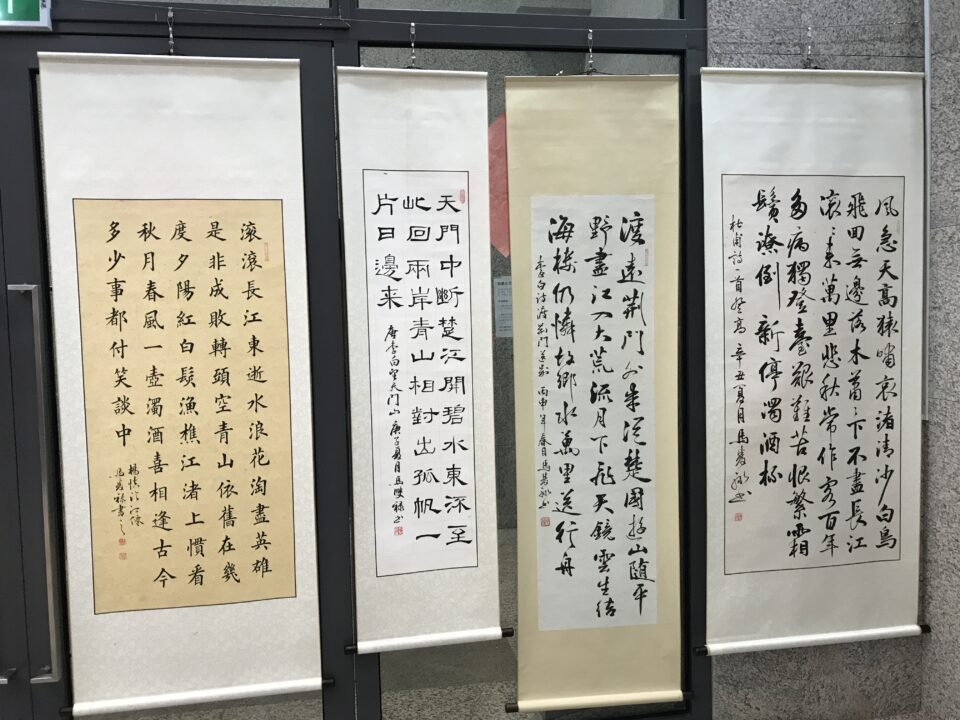 風急天高猿嘯哀渚清沙白鳥
飛回無邊落木蕭〻下不盡長江
滾〻来萬里悲秋常作客百年
多病獨登臺艱難苦恨繁霜
鬢潦倒新停濁酒杯
杜甫詩一首登高 辛丑夏月馬雙祿书
渡遠荆門外来從楚國遊山隨平
野盡江入大荒流月下飛天鏡雲生結
海樓仍憐故鄉水萬里送行舟
李白詩渡荆門送別 丙申年春日馬雙祿书
天門中斷楚江開碧水東流至
此回兩岸青山相對出孤帆一
片日邊来
唐李白望天門山 庚子夏月馬雙祿书
滾滾長江東逝水浪花淘盡英雄
是非成敗轉頭空青山依舊在幾
度夕陽紅白髮漁樵江渚上慣看
秋月春風一壺濁酒喜相逢古今
多少事都付笑談中
馬雙祿書之